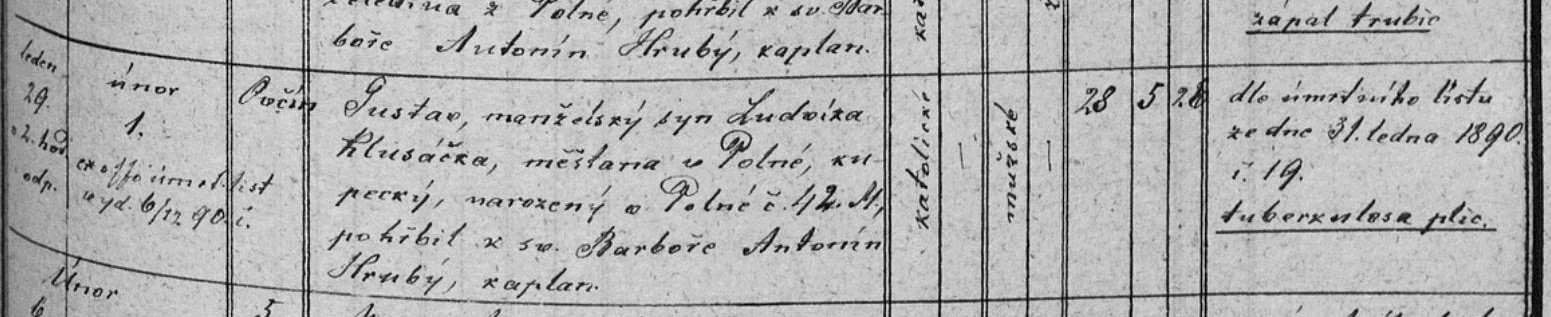 z Polné, pohřbil k sv. Bar-
boře Antonín Hrubý, kaplan.
zápal trubic
leden
29.
o 2. hod
odp.
únor
1.
ex offo úmrt. list
vyd. 6/12 90. č.
Gustav, manželský syn Ludvíka
Klusáčka, měšťana v Polné, ku-
pecký, narozený v Polné č. 42 M,
pohřbil k sv. Barboře Antonín
Hrubý, kaplan.
katolické
—
mužské
—
28 5 28
dle úmrtního listu
ze dne 31. ledna 1890.
č. 19.
tuberkulosa plic.
Únor
6
5